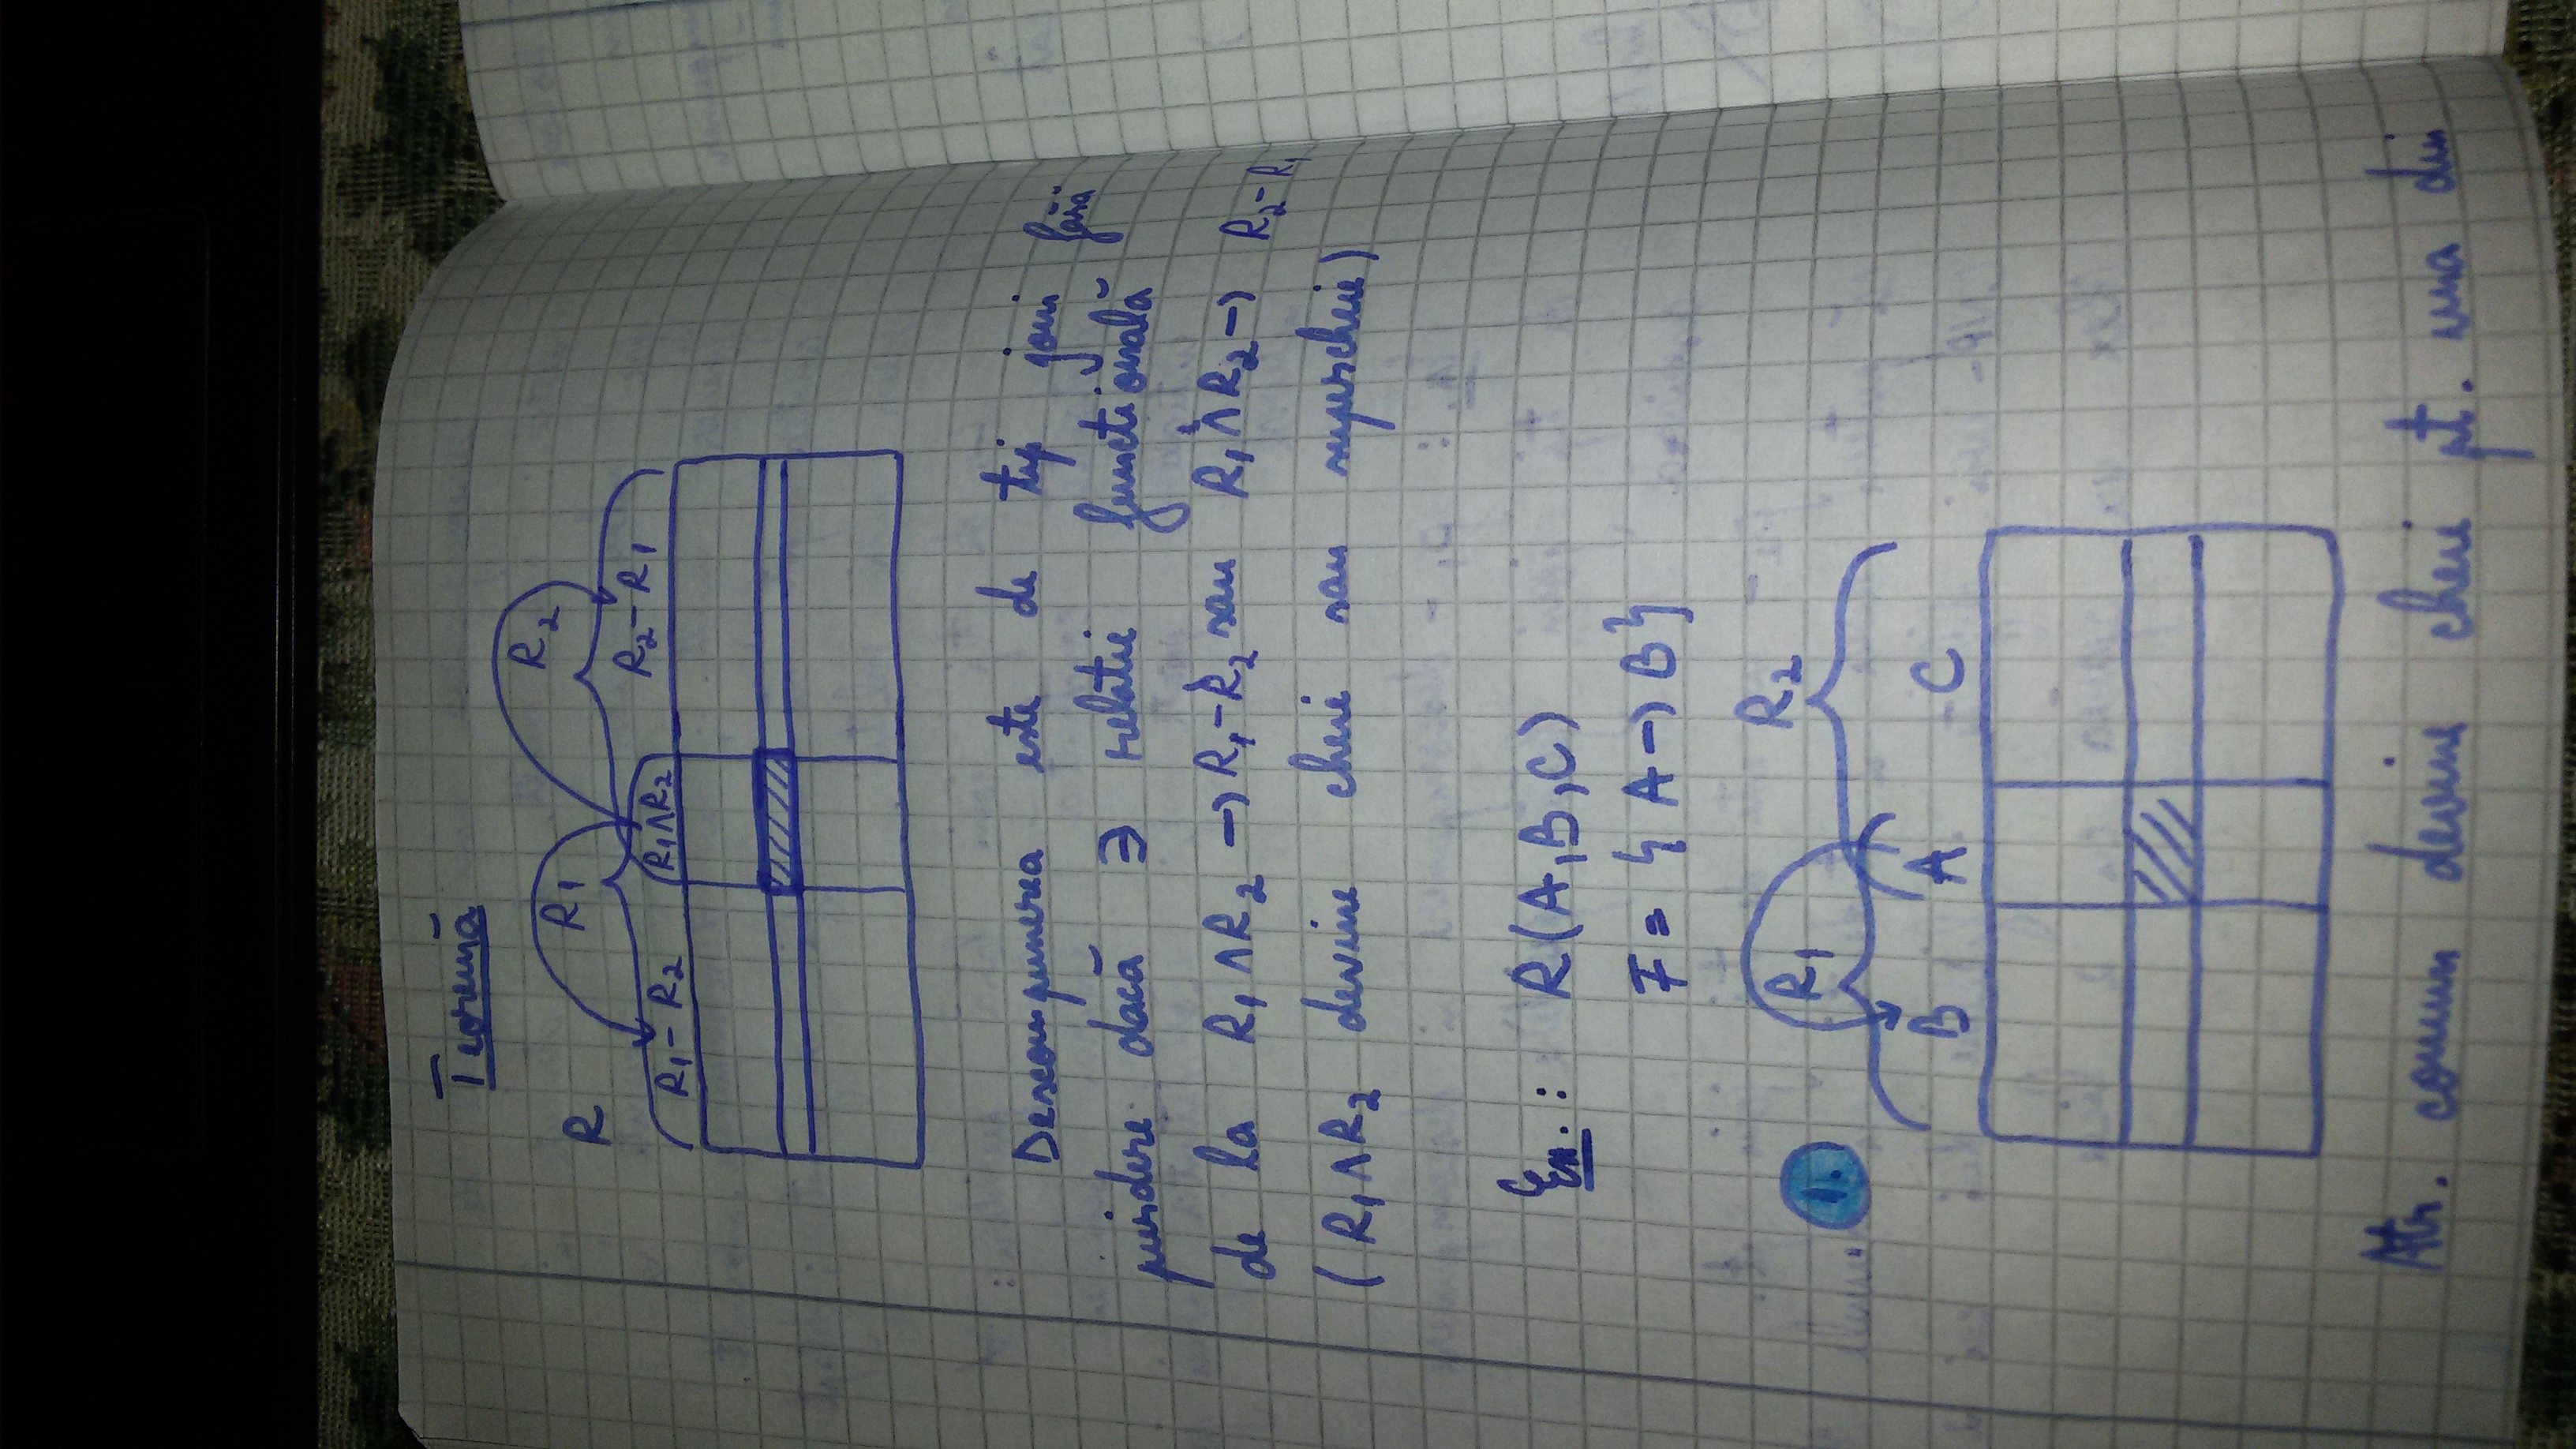 Teoremă
R R₁ R₂
R₁-R₂ R₁∧R₂ R₂-R₁
Descompunerea este de tip join fără
pierdere dacă ∃ relatie functională
de la R₁∧R₂ → R₁-R₂ sau R₁∧R₂ → R₂-R₁
(R₁∧R₂ devine cheie sau supercheie)
Ex.: R(A,B,C)
F = {A→B}
1. R₁ R₂
B A C
Atr. comun devine cheie pt. una din